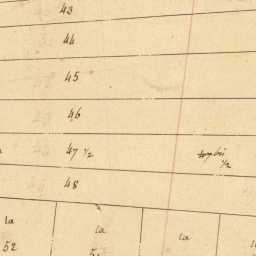 43
44
45
46
47 1/2
1/2
48
la
la
la
52